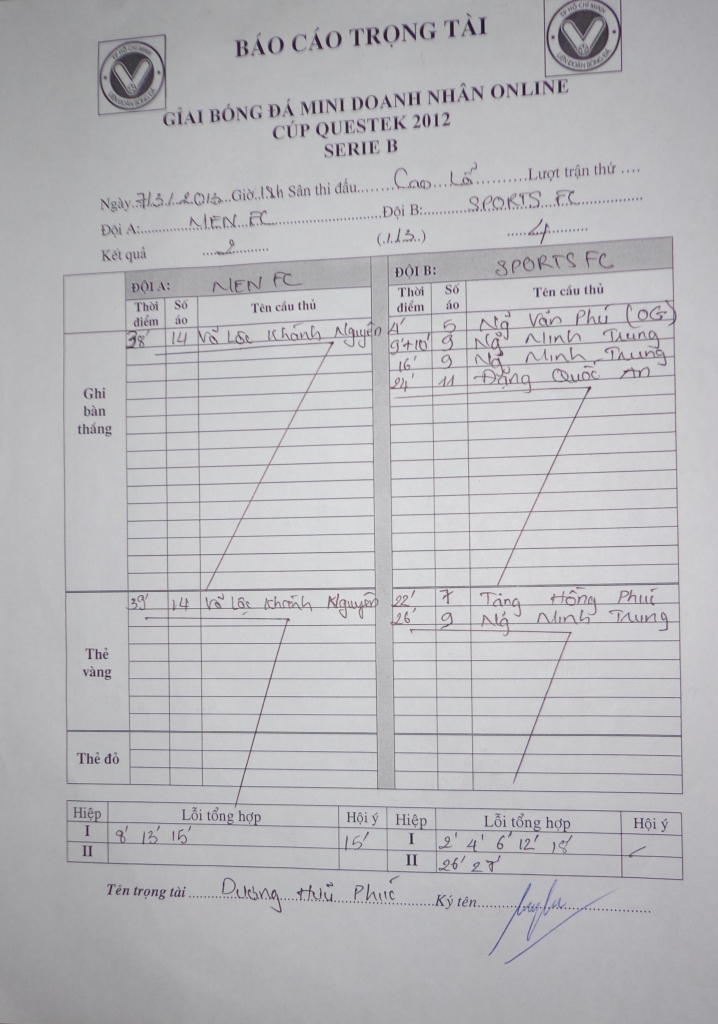 BÁO CÁO TRỌNG TÀI
GIẢI BÓNG ĐÁ MINI DOANH NHÂN ONLINE
CÚP QUESTEK 2012
SERIE B
Ngày 7/3/2013 Giờ 18h Sân thi đấu........Cao Lỗ..........Lượt trận thứ ....
Đội A:.......MEN FC..........Đội B:.......SPORTS FC..........
Kết quả ....2.......... (.1/3..) ......4.....
ĐỘI A: MEN FC ĐỘI B: SPORTS FC
Thời điểm Số áo Tên cầu thủ Thời điểm Số áo Tên cầu thủ
Ghi bàn thắng
38' 14 Võ Lộc Khánh Nguyên 4' 5 Ng̃ Văn Phú (OG)
9'+10' 9 Ng̃ Minh Trung
16' 9 Ng̃ Minh Trung
24' 11 Đặng Quốc An
Thẻ vàng
39' 14 Võ Lộc Khánh Nguyên 22' 7 Tăng Hồng Phúc
26' 9 Ng̃ Minh Trung
Thẻ đỏ
Hiệp Lỗi tổng hợp Hội ý Hiệp Lỗi tổng hợp Hội ý
I 8' 13' 15' 15' I 2' 4' 6' 12' 18'
II II 26' 27'
Tên trọng tài ....Dương Hữu Phúc..........Ký tên..........